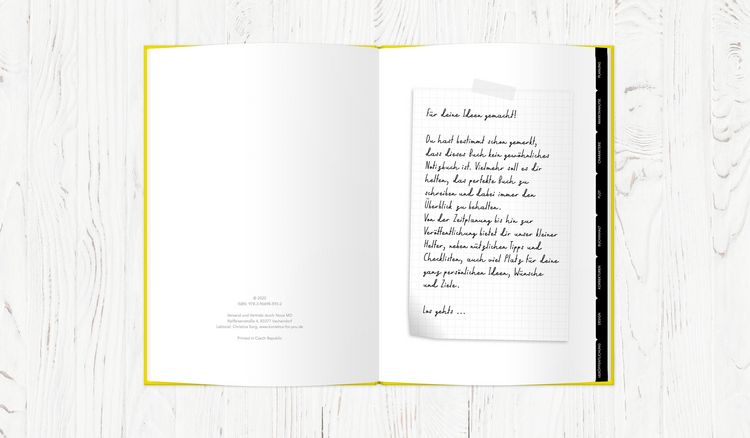 © 2020
Printed in Czech Republic
Für deine Ideen gemacht!
Du hast bestimmt schon gemerkt,
dass dieses Buch kein gewöhnliches
Notizbuch ist. Vielmehr soll es dir
helfen, das perfekte Buch zu
schreiben und dabei immer den
Überblick zu behalten.
Von der Zeitplanung bis hin zur
Veröffentlichung bietet dir unser kleiner
Helfer, neben nützlichen Tipps und
Checklisten, auch viel Platz für deine
ganz persönlichen Ideen, Wünsche
und Ziele.
Los gehts ...
PLANUNG
CHARAKTERE
PLOT
KORREKTUREN
DESIGN
VERÖFFENTLICHUNG